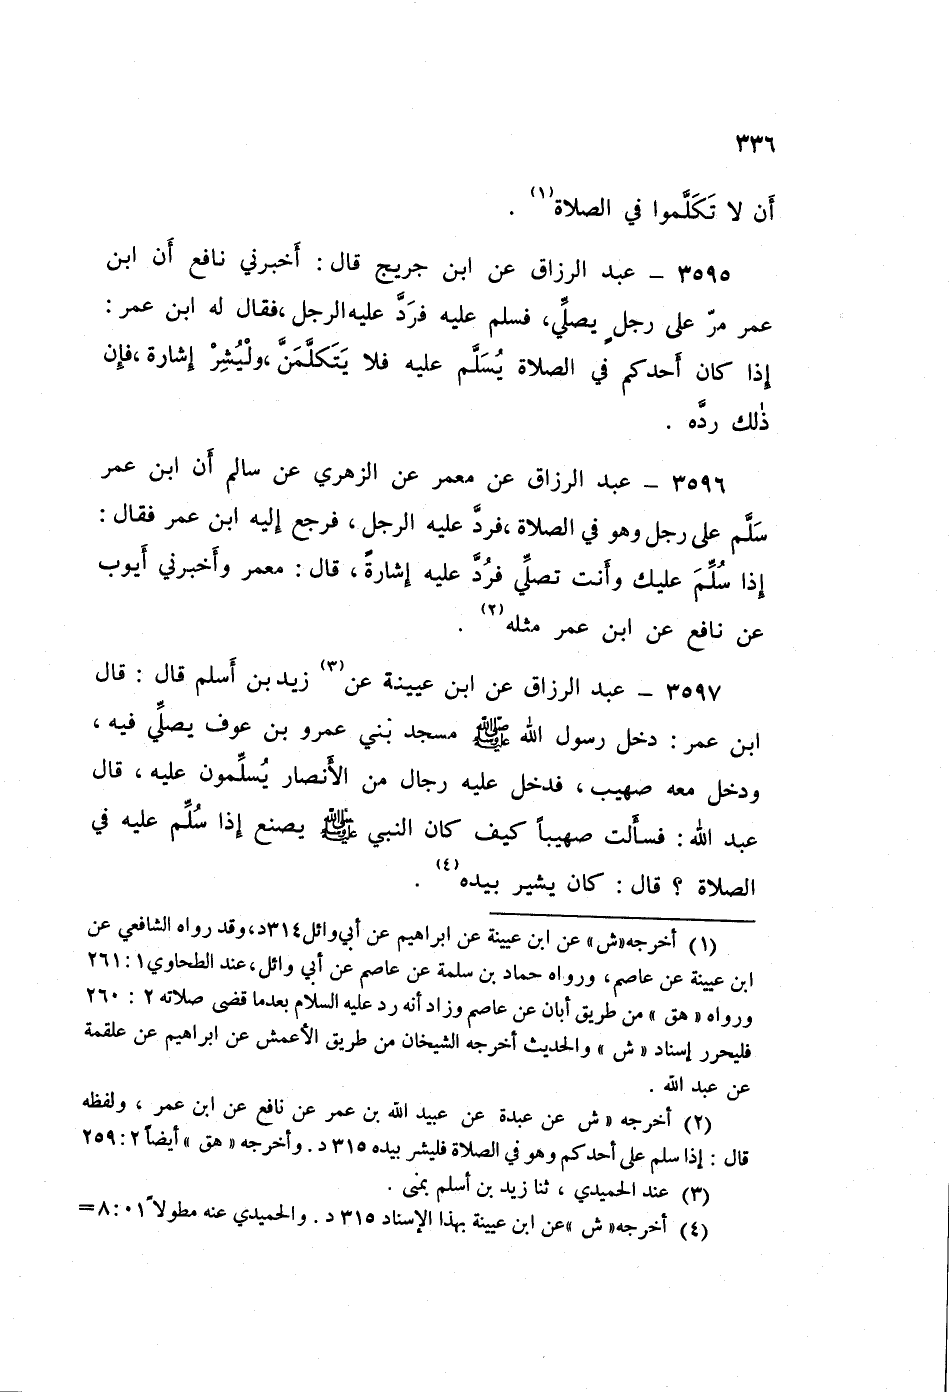 ٣٣٦
أَن لا تَكَلَّموا في الصلاة(١) .
٣٥٩٥ – عبد الرزاق عن ابن جريج قال : أَخبرني نافع أَن ابن
عمر مرّ على رجلٍ يصلِّي، فسلم عليه فرَدَّ عليه الرجل ،فقال له ابن عمر :
إِذا كان أَحدكم في الصلاة يُسَلَّم عليه فلا يَتَكلَّمَنَّ ،ولْيُشِرْ إِشارة ،فإِن
ذٰلك ردَّه .
٣٥٩٦ – عبد الرزاق عن معمر عن الزهري عن سالم أَن ابن عمر
سَلَّم على رجل وهو في الصلاة ،فردَّ عليه الرجل ، فرجع إِليه ابن عمر فقال :
إِذا سُلِّمَ عليك وأَنت تصلِّي فرُدَّ عليه إِشارةً ، قال : معمر وأَخبرني أَيوب
عن نافع عن ابن عمر مثله(٢) .
٣٥٩٧ – عبد الرزاق عن ابن عيينة عن(٣) زيد بن أَسلم قال : قال
ابن عمر : دخل رسول الله ﷺ مسجد بَني عمرو بن عوف يصلِّي فيه ،
ودخل معه صهيب ، فدخل عليه رجال من الأَنصار يُسلِّمون عليه ، قال
عبد الله : فسأَلت صهيباً كيف كان النبي ﷺ يصنع إِذا سُلِّم عليه في
الصلاة ؟ قال : كان يشير بيده(٤) .
(١) أخرجه«ش» عن ابن عيينة عن ابراهيم عن أبي وائل٣١٤د،وقد رواه الشافعي عن
ابن عيينة عن عاصم، ورواه حماد بن سلمة عن عاصم عن أبي وائل،عند الطحاوي١ : ٢٦١
ورواه « هق » من طريق أبان عن عاصم وزاد أنه رد عليه السلام بعدما قضى صلاته ٢ : ٢٦٠
فليحرر إسناد « ش » والحديث أخرجه الشيخان من طريق الأعمش عن ابراهيم عن علقمة
عن عبد الله .
(٢) أخرجه «ش عن عبدة عن عبيد الله بن عمر عن نافع عن ابن عمر ، ولفظه
قال : إذا سلم على أحدكم وهو في الصلاة فليشر بيده ٣١٥ د . وأخرجه « هق » أيضاً ٢ : ٢٥٩
(٣) عند الحميدي ، ثنا زيد بن أسلم بمنى .
(٤) أخرجه« ش »عن ابن عيينة بهذا الإسناد ٣١٥ د . والحميدي عنه مطولاً ٠١ : ٨=